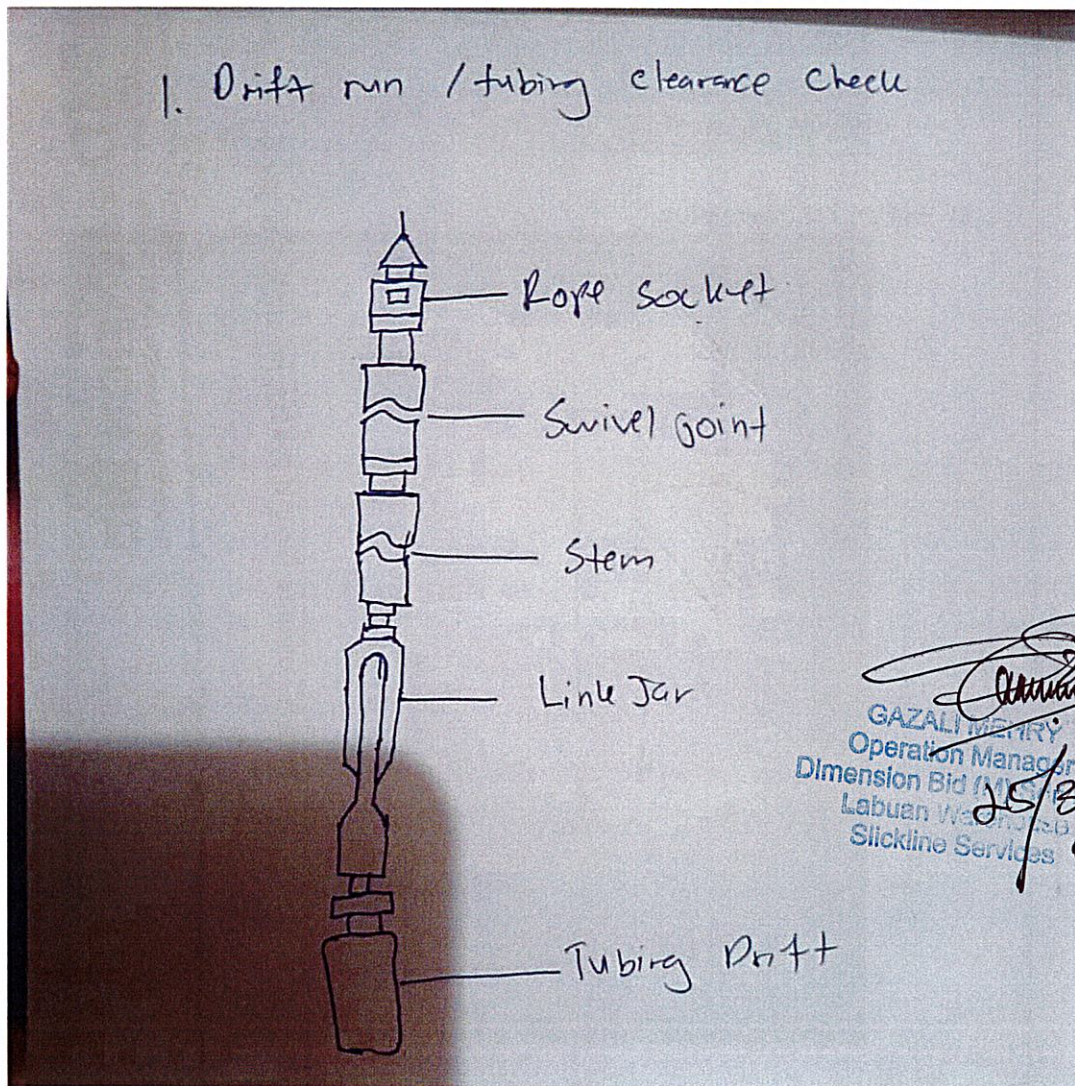 1. Drift run / tubing clearance check
Rope socket
Swivel goint
Stem
Link Jar
Tubing Drift
GAZALI MEHRY
Operation Manager
Dimension Bid (M)
Labuan Warehouse
Slickline Services
25/8